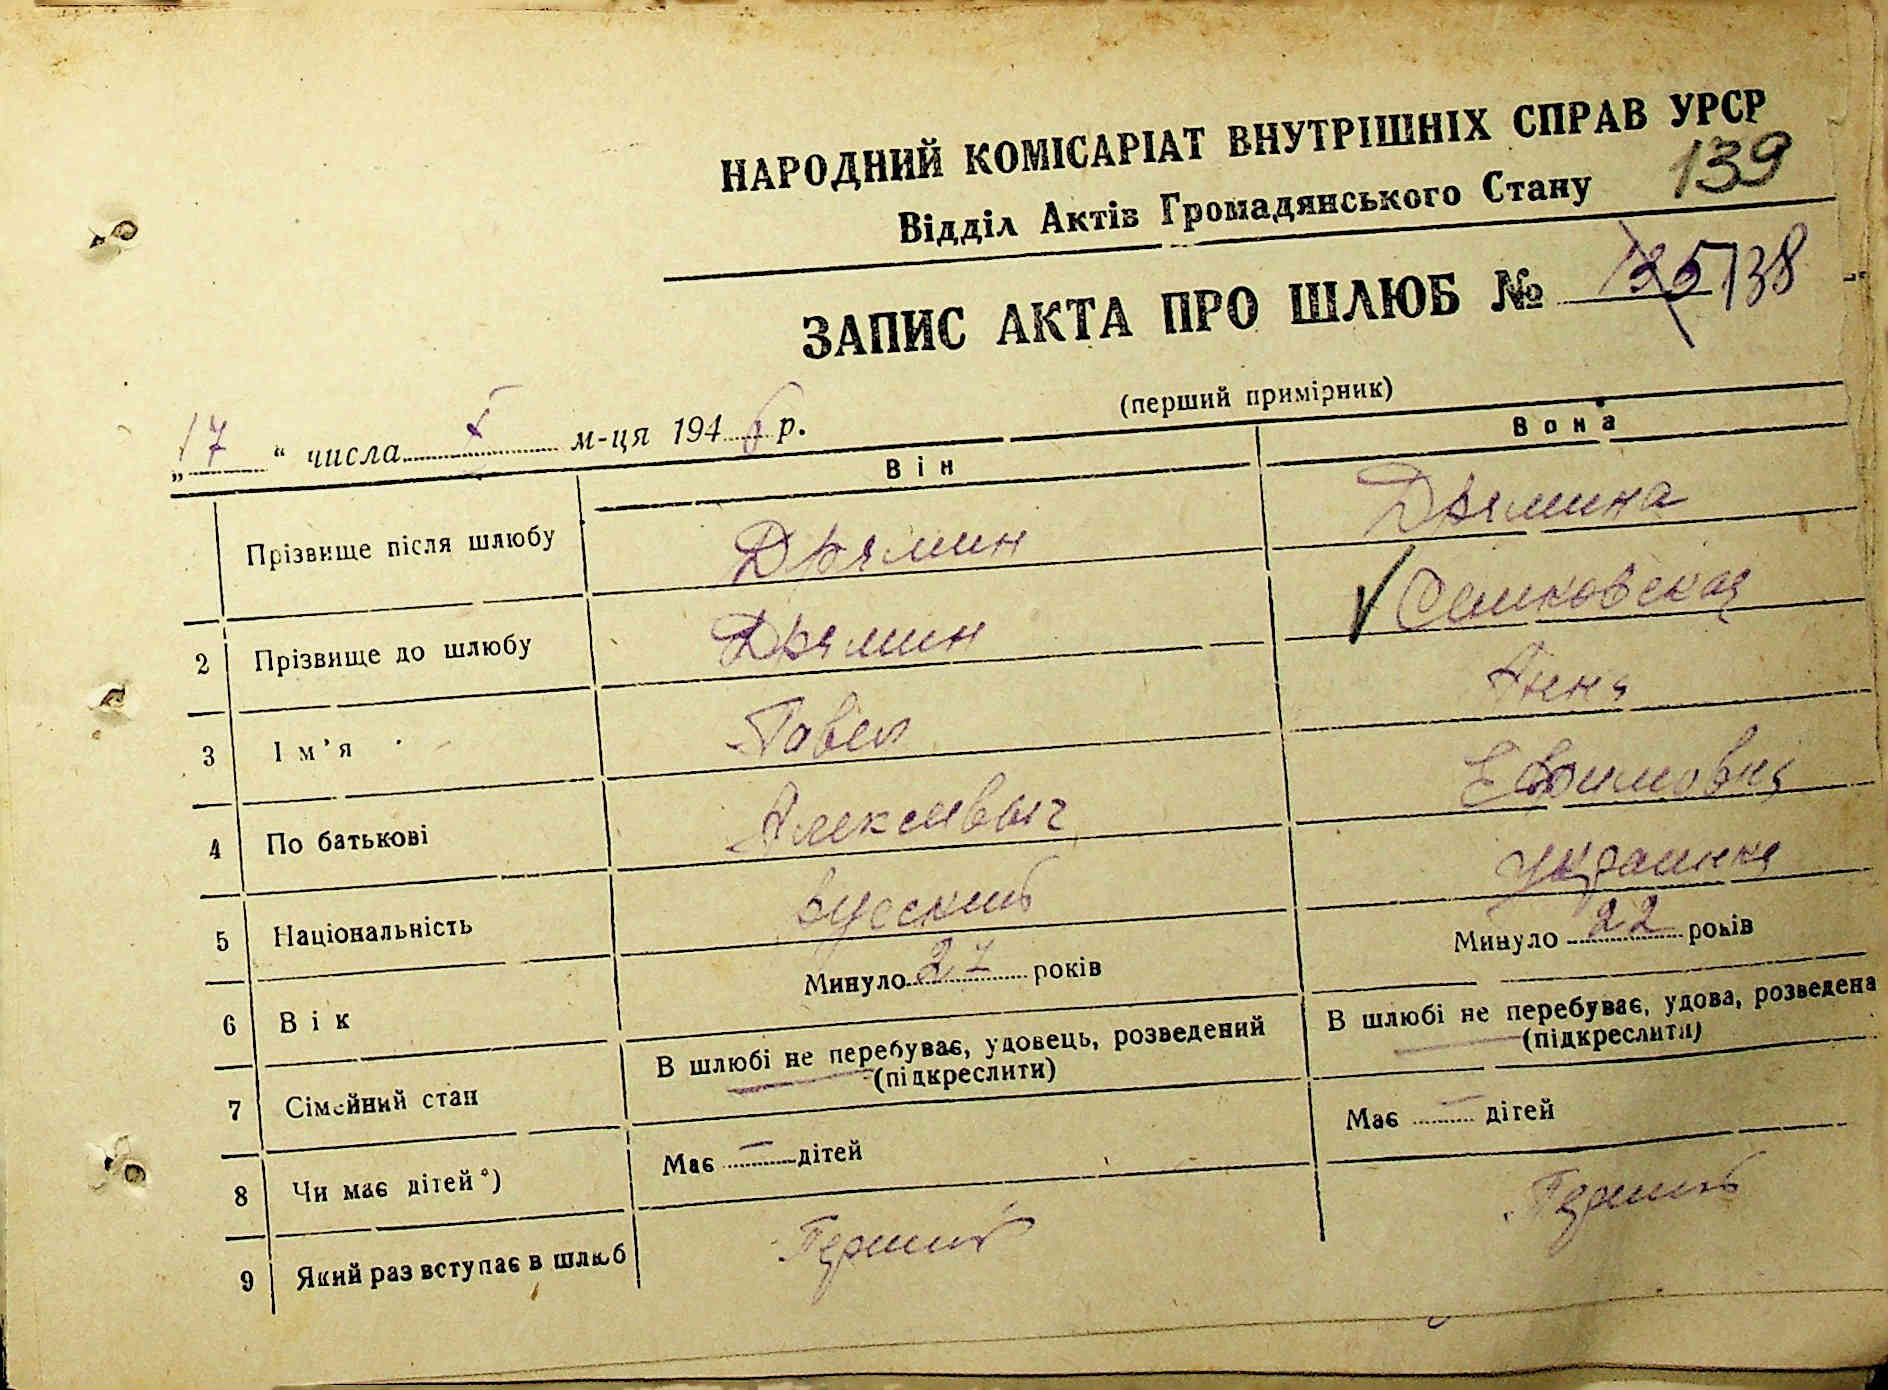 НАРОДНИЙ КОМІСАРІАТ ВНУТРІШНІХ СПРАВ УРСР
139
Відділ Актів Громадянського Стану
ЗАПИС АКТА ПРО ШЛЮБ № 138
(перший примірник)
„17“ числа X м-ця 1946 р.
Він Вона
Прізвище після шлюбу
2 Прізвище до шлюбу
3 Ім’я Павел Анна
4 По батькові Ефимовна
5 Національність русский украинка
6 Вік Минуло 27 років Минуло 22 років
7 Сімейний стан В шлюбі не перебуває, удовець, розведений В шлюбі не перебуває, удова, розведена
(підкреслити) (підкреслити)
8 Чи має дітей*) Має — дітей Має — дітей
9 Який раз вступає в шлюб